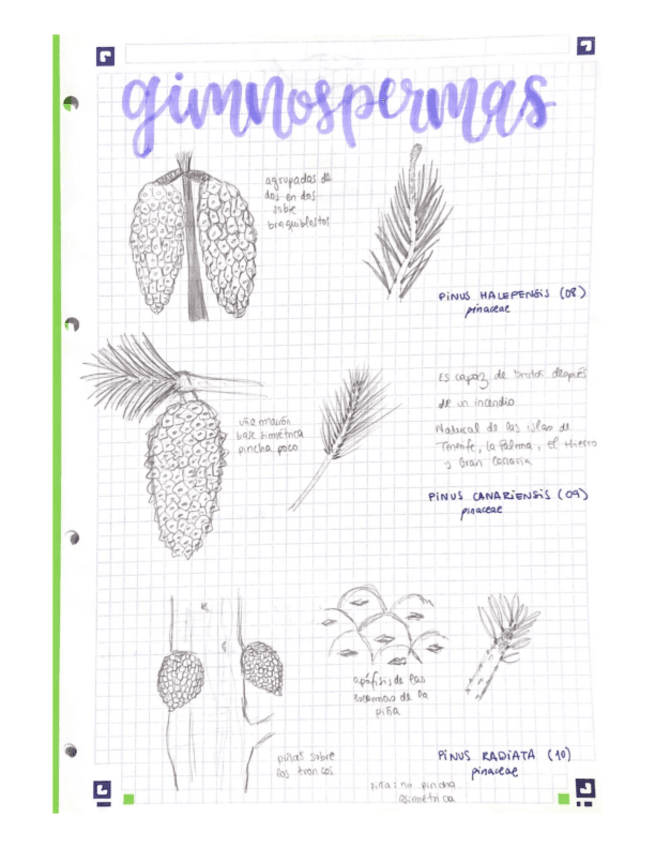 gimnospermas
agrupadas de
dos en dos
sobre
braquiblastos
PINUS HALEPENSIS (08)
pinaceae
Es capaz de brotar después
de un incendio
Natural de las islas de
Tenerife, la Palma, el Hierro
y Gran Canaria
piña marrón
base simétrica
pincha poco
PINUS CANARIENSIS (09)
pinaceae
apófisis de las
escamas de la
piña
piñas sobre
los troncos
PINUS RADIATA (10)
pinaceae
piña: no pincha
asimétrica